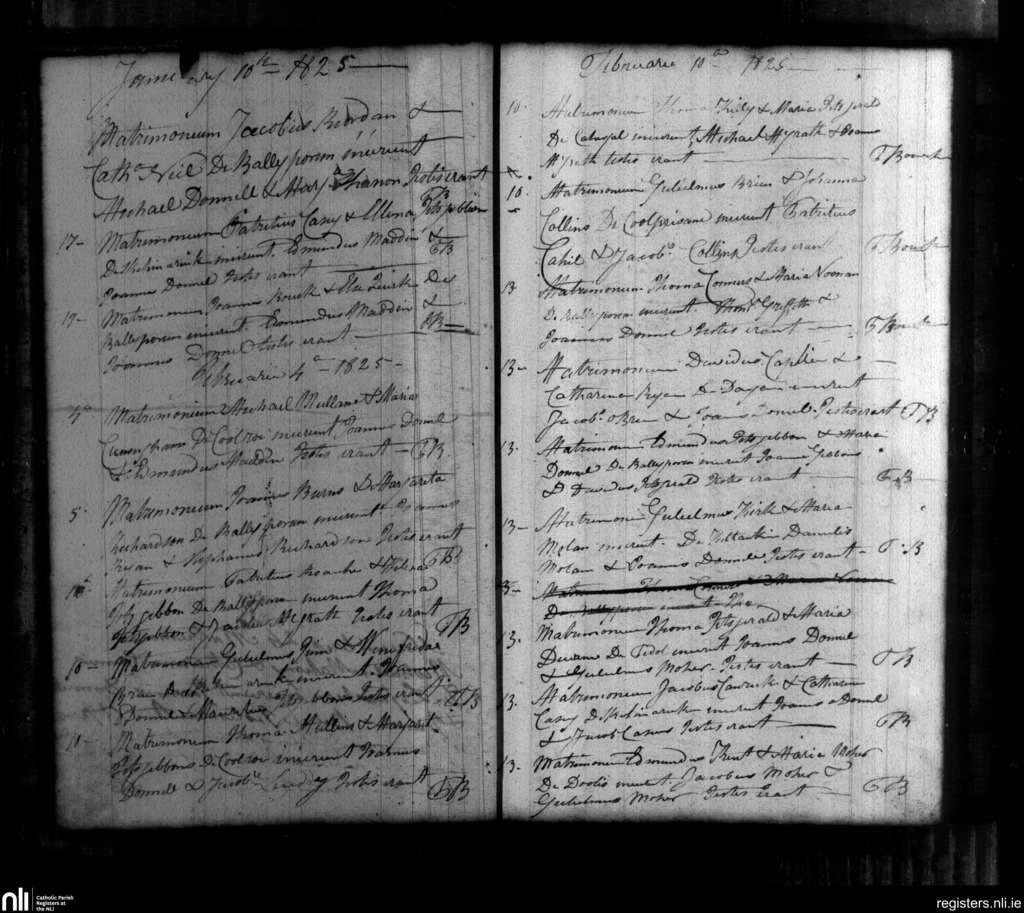 January 10th 1825
Matrimonium Jacobus Riordan &
Cath. Niel De Ballyporeen inierunt
Michael Donnell & Mary Shanon Testis erant
TB
17- Matrimonium Patritius Casy & Ellena Fitzgibbon
De inierunt. Edmundus Madden &
Joannes Donnel Testes erant TB
19- Matrimonium Joannes & De
Ballyporeen inierunt. Edmundus Madden &
Joannes Donnel testes erant TB
Februarii 4a 1825-
4a Matrimonium Michael Mullane & Maria
Cuningham De Coolroi inierunt Joannes Donnel
& Edmundus Madden Testes erant - TB
5. Matrimonium Joannes Burns & Margarita
Richardson De Ballyporeen inierunt Joannes
Ryan & Stephanus Richardson Testes erant
TB
10a Matrimonium Patritius Roarke & Helena
Fitzgibbon De Ballyporeen inierunt Thoma
Fitzgibbon & Daniel McGrath Testes erant
TB
10- Matrimonium Gulielmus & Winefrida
Brien De inierunt. Joannes
Donnel & Mauritius Fitzgibbon Testes erant TB
10- Matrimonium Thoma Mullins & Margaret
Fitzgibbons De Coolroi inierunt Joannes
Donnell & Jacobus Testes erant TB
Februarii 10a 1825
10. Matrimonium Thoma Killy & Maria Fitzgerald
De inierunt, Michael McGrath & Joannes
McGrath testes erant T Bourk
10. Matrimonium Gulielmus Brien & Johanna
Collins De inierunt Patritius
Cahil & Jacobo Collins Testes erant T Bourk
13 Matrimonium Thoma Conners & Maria Noonan
De Ballyporeen inierunt Thoms Griffith &
Joannes Donnel Testes erant T Bourke
13- Matrimonium Davidus &
Catharina Ryan De inierunt
Jacobo OBrien & Joannes Donnel Testes erant TB
13. Matrimonium Edmundus Fitzgibbon & Maria
Donnel De Ballyporeen inierunt Joannes
& Davidus Fitzgerald Testes erant TB
13- Matrimoni Gulielmus Kirk & Maria
Molan inierunt. De Danielis
Molan & Joannes Donnel Testes erant - T.B
3- Matrim Thoma Conners & Maria
De Ballyporeen inierunt Tho
13. Matrimonium Thoma Fitzgerald & Maria
De inierunt Joannes Donnel
& Gulielmus Moher Testes erant TB
13. Matrimonium Jacobus & Catharina
Casey De inierunt Joannes Donnel
& Jacob Casey Testes erant TB
13. Matrimonium Edmundus & Maria Moher
De inierunt Jacobus Moher &
Gulielmus Moher Testes Erant TB
nli
Catholic Parish
Registers at
the NLI
registers.nli.ie